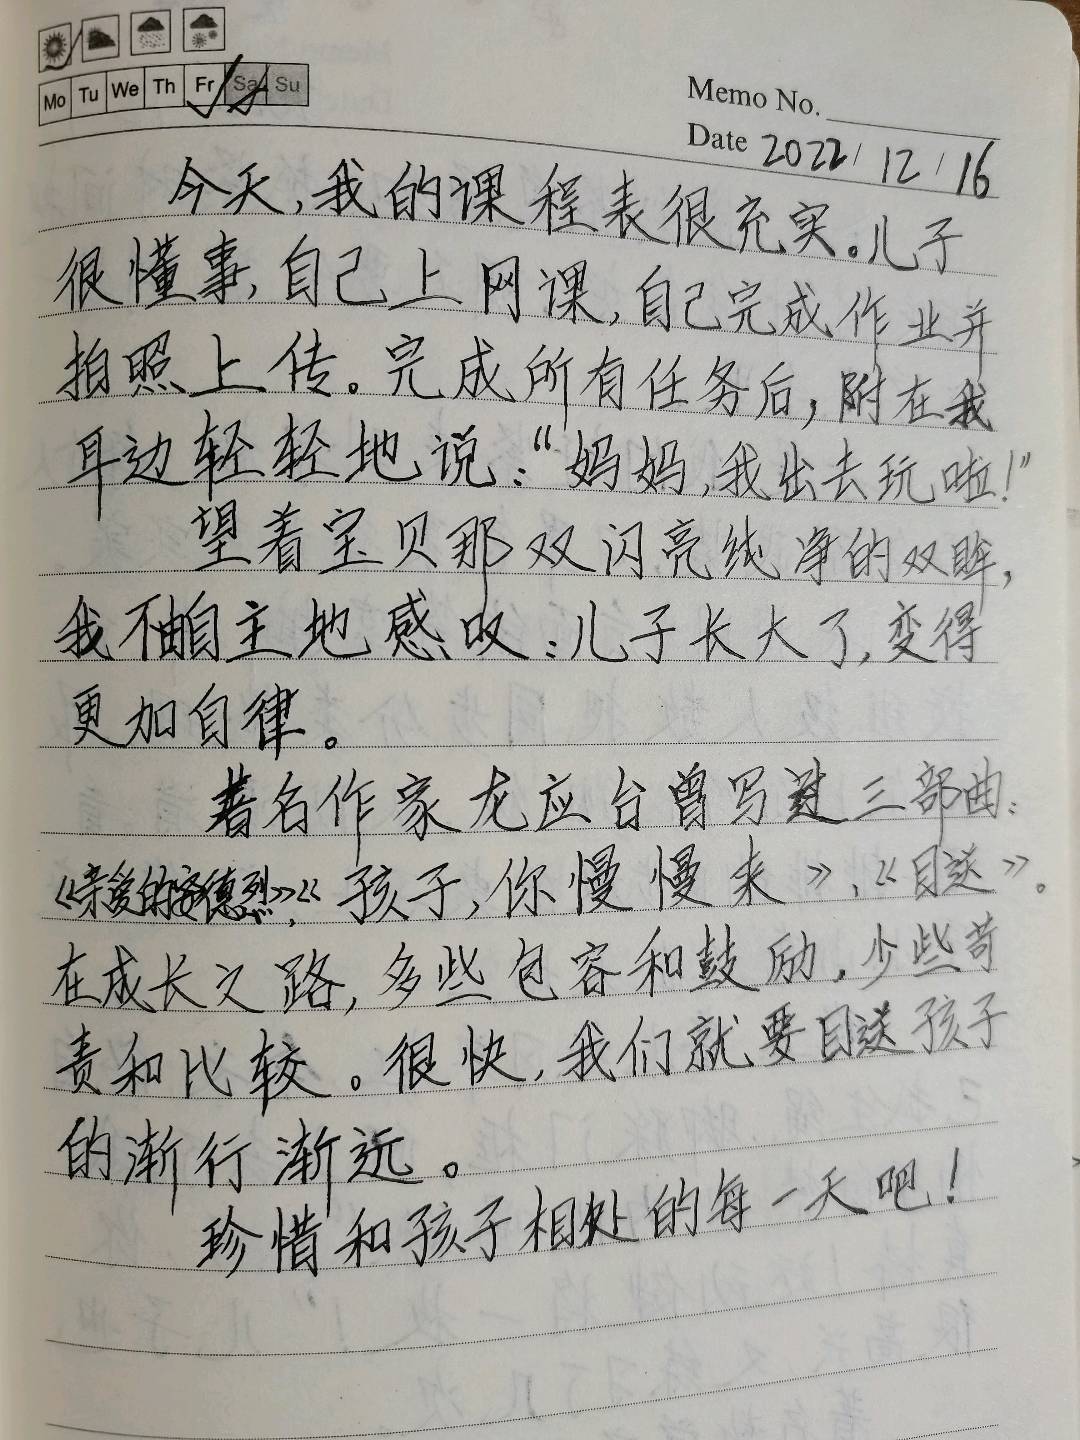 Mo Tu We Th Fr Sa Su
Memo No.
Date 2022/12/16
今天,我的课程表很充实。儿子
很懂事,自己上网课,自己完成作业并
拍照上传。完成所有任务后,附在我
耳边轻轻地说:“妈妈,我出去玩啦!”
望着宝贝那双闪亮纯净的双眸,
我不由自主地感叹:儿子长大了,变得
更加自律。
著名作家龙应台曾写过三部曲:
《亲爱的安德烈》,《孩子,你慢慢来》,《目送》。
在成长之路,多些包容和鼓励,少些苛
责和比较。很快,我们就要目送孩子
的渐行渐远。
珍惜和孩子相处的每一天吧!